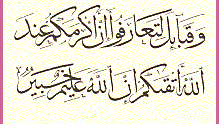 وَقَبَائِلَ لِتَعَارَفُوا إِنَّ أَكْرَمَكُمْ عِنْدَ
اللَّهِ أَتْقَىٰكُمْ إِنَّ اللَّهَ عَلِيمٌ خَبِيرٌ